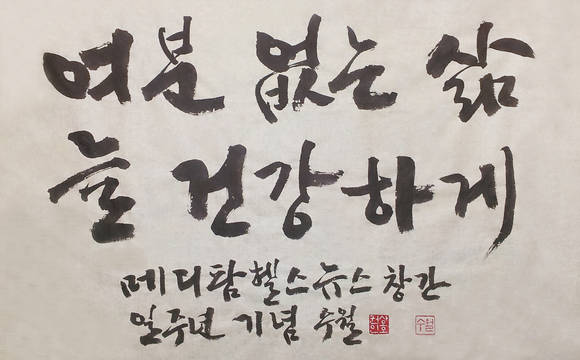 여분 없는 삶
늘 건강하게
메디팜헬스뉴스 창간
일주년 기념 수월